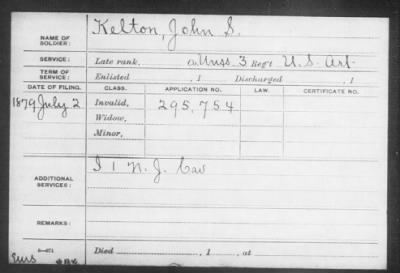 NAME OF SOLDIER: Kelton, John S.
SERVICE: Late rank, Co. Unss. 3 Reg't U.S. Art.
TERM OF SERVICE: Enlisted , 1 Discharged , 1
DATE OF FILING. CLASS. APPLICATION NO. LAW. CERTIFICATE NO.
1879 July 2 Invalid, 295,754
Widow,
Minor,
ADDITIONAL SERVICES: I 1 N.J. Cav
REMARKS:
Died , 1 , at